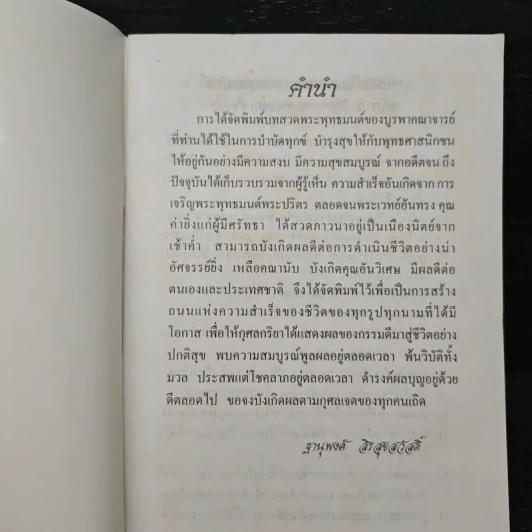 คำนำ
การได้จัดพิมพ์บทสวดพระพุทธมนต์ของบูรพาคณาจารย์
ที่ท่านได้ใช้ในการบำบัดทุกข์ บำรุงสุขให้กับพุทธศาสนิกชน
ให้อยู่กันอย่างมีความสงบ มีความสุขสมบูรณ์ จากอดีตจน ถึง
ปัจจุบันได้เก็บรวบรวมจากผู้รู้เห็น ความสำเร็จอันเกิดจาก การ
เจริญพระพุทธมนต์พระปริตร ตลอดจนพระเวทย์อันทรง คุณ
ค่ายิ่งแก่ผู้มีศรัทธา ได้สวดภาวนาอยู่เป็นเนืองนิตย์จาก
เช้าค่ำ สามารถบังเกิดผลดีต่อการดำเนินชีวิตอย่างน่า
อัศจรรย์ยิ่ง เหลือคณานับ บังเกิดคุณอันวิเศษ มีผลดีต่อ
ตนเองและประเทศชาติ จึงได้จัดพิมพ์ไว้เพื่อเป็นการสร้าง
ถนนแห่งความสำเร็จของชีวิตของทุกรูปทุกนามที่ได้มี
โอกาส เพื่อให้กุศลกริยาได้แสดงผลของกรรมดีมาสู่ชีวิตอย่าง
ปกติสุข พบความสมบูรณ์พูลผลอยู่ตลอดเวลา พ้นวิบัติทั้ง
มวล ประสพแต่โชคลาภอยู่ตลอดเวลา ดำรงค์ผลบุญอยู่ด้วย
ดีตลอดไป ขอจงบังเกิดผลตามกุศลเจตของทุกคนเถิด
ฐานุพงศ์ สิริสุขสวัสดิ์